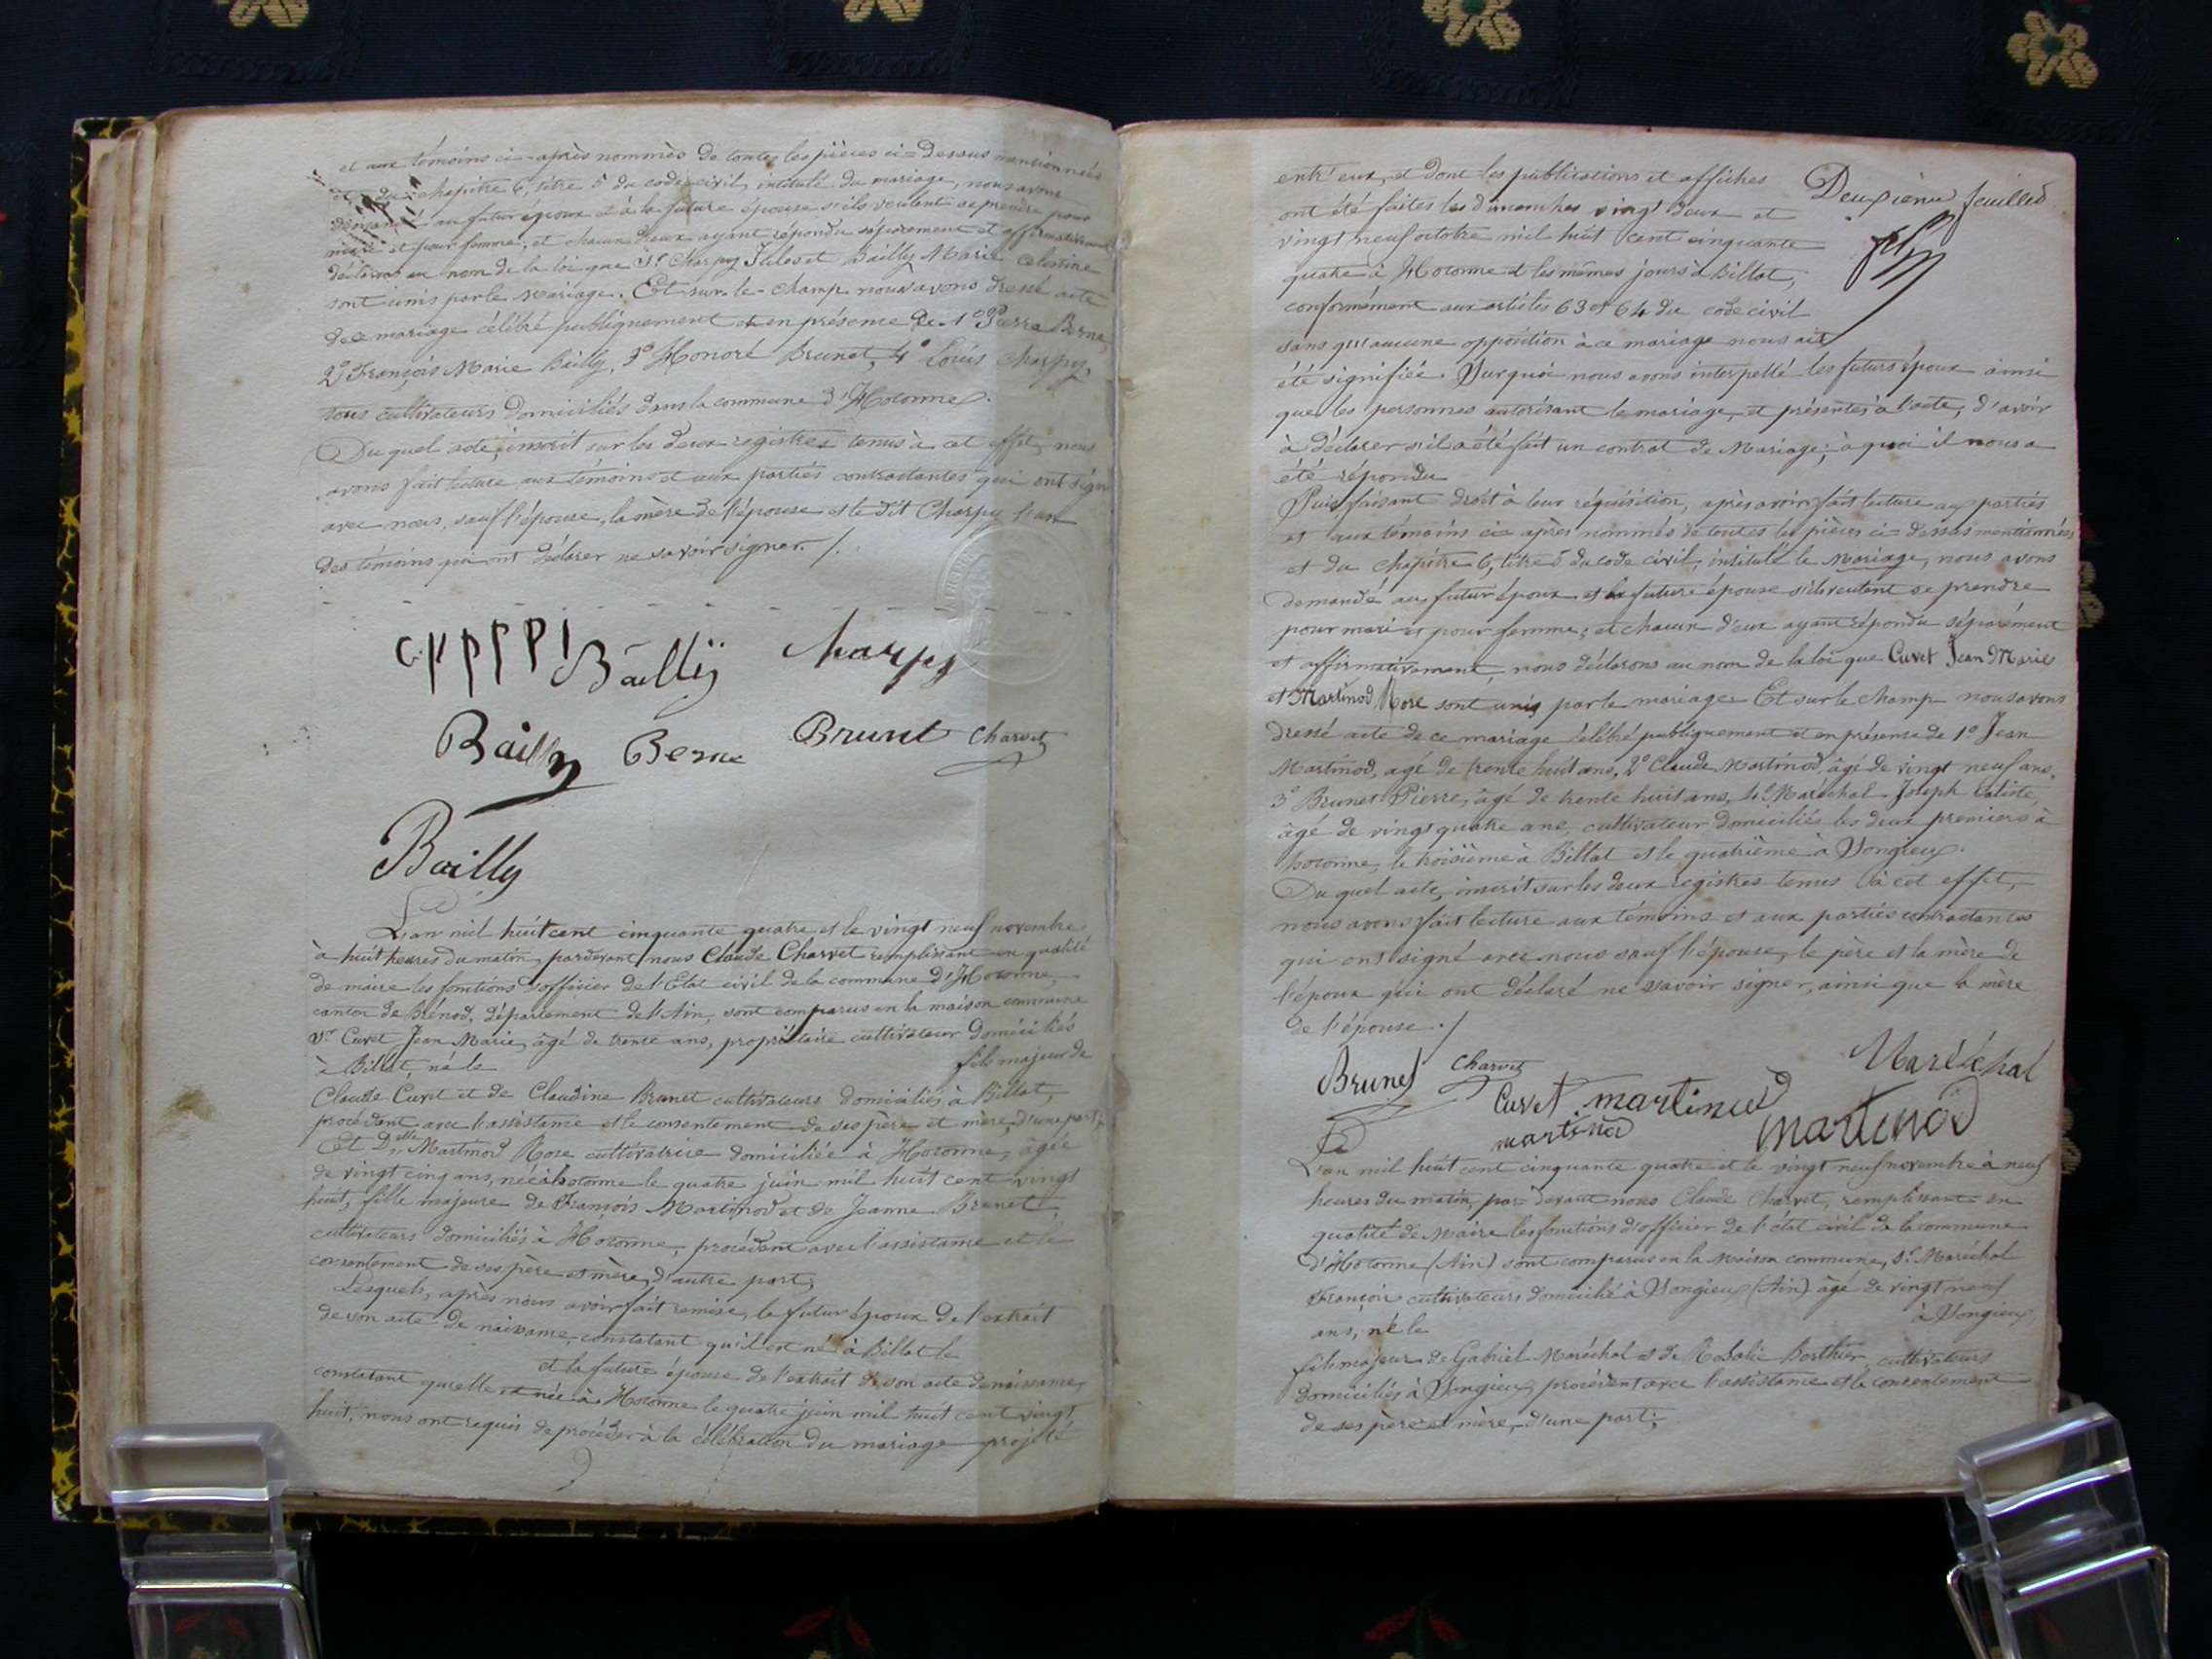 et aux témoins ci-après nommés de toutes les pièces ci-dessus mentionnées
et du chapitre 6, titre 5 du code civil, intitulé du mariage, nous avons
demandé au futur époux et à la future épouse s'ils veulent se prendre pour
mari et pour femme, et chacun d'eux ayant répondu séparément et affirmativement
déclarons au nom de la loi que Sr Charpy Jules et Bailly Marie Célestine
sont unis par le mariage. Et sur-le-champ nous avons dressé acte
de ce mariage célébré publiquement et en présence de 1° Pierre Berne,
2° François Marie Bailly, 3° Honoré Brunet, 4° Louis Charpy,
tous cultivateurs domiciliés dans la commune d'Hotonne.
Du quel acte, inscrit sur les deux registres tenus à cet effet, nous
avons fait lecture aux témoins et aux parties contractantes qui ont signé
avec nous, sauf l'épouse, la mère de l'épouse et le dit Charpy l'un
des témoins qui ont déclarer ne savoir signer. /.
Bailly Charpy
Bailly Berne Brunet Charvet
Bailly
L'an mil huit cent cinquante quatre et le vingt neuf novembre
à huit heures du matin, pardevant nous Claude Charvet remplissant en qualité
de maire les fonctions d'officier de l'Etat civil de la commune d'Hotonne,
canton de Brénod, département de l'Ain, sont comparus en la maison commune
Sr Cuvet Jean Marie, âgé de trente ans, propriétaire cultivateur domiciliés
à Billat, né le fils majeur de
Claude Cuvet et de Claudine Brunet cultivateurs domiciliés à Billat,
procédant avec l'assistance et le consentement de ses père et mère, d'une part,
Et Dlle Martinod Rose cultivatrice domiciliée à Hotonne, âgée
de vingt cinq ans, née à hotonne le quatre juin mil huit cent vingt
huit, fille majeure de François Martinod et de Jeanne Brunet,
cultivateurs domiciliés à Hotonne, procédant avec l'assistance et le
consentement de ses père et mère, d'autre part,
Lesquels, après nous avoir fait remise, le futur époux de l'extrait
de son acte de naissance, constatant qu'il est né à Billat le
et la future épouse de l'extrait de son acte de naissance,
constatant qu'elle est née à Hotonne le quatre juin mil huit cent vingt
huit, nous ont requis de procéder à la célébration du mariage projeté
Deuxième feuillet
entr'eux, et dont les publications et affiches
ont été faites les dimanches vingt deux et
vingt neuf octobre mil huit cent cinquante
quatre à Hotonne et les mêmes jours à Billat,
conformément aux articles 63 et 64 du code civil
sans qu'aucune opposition à ce mariage nous ait
été signifiée. Sur quoi nous avons interpellé les futurs époux ainsi
que les personnes autorisant le mariage, et présentes à l'acte, d'avoir
à déclarer s'il a été fait un contrat de Mariage; à quoi il nous a
été répondu
Puis faisant droit à leur réquisition, après avoir fait lecture aux parties
et aux témoins ci-après nommés de toutes les pièces ci-dessus mentionnées
et du chapitre 6, titre 5 du code civil, intitulé le Mariage, nous avons
demandé au futur époux et la future épouse s'ils veulent se prendre
pour mari et pour femme; et chacun d'eux ayant répondu séparément
et affirmativement, nous déclarons au nom de la loi que Cuvet Jean Marie
et Martinod Rose sont unis par le mariage. Et sur le champ nous avons
dressé acte de ce mariage célébré publiquement et en présence de 1° Jean
Martinod, agé de trente huit ans, 2° Claude Martinod, âgé de vingt neuf ans,
3° Brunet Pierre, âgé de trente huit ans, 4° Maréchal Joseph Caliste,
âgé de vingt quatre ans, cultivateur domiciliés les deux premiers à
hotonne, le troisième à Billat et le quatrième à Songieu.
Du quel acte, inscrit sur les deux registres tenus à cet effet,
nous avons fait lecture aux témoins et aux parties contractantes
qui ont signé avec nous sauf l'épouse, le père et la mère de
l'époux qui ont déclaré ne savoir signer, ainsi que la mère
de l'épouse. /
Brunet Charvet Maréchal
Cuvet martinod
martinod martinod
L'an mil huit cent cinquante quatre et le vingt neuf novembre à neuf
heures du matin, par-devant nous Claude Charvet, remplissant en
qualité de Maire les fonctions d'officier de l'état civil de la commune
d'Hotonne (Ain) sont comparus en la maison commune, Sr Maréchal
François cultivateurs domicilié à Songieu (Ain) âgé de vingt neuf
ans, né le à Songieu
fils majeur de Gabriel Maréchal et de Rosalie Berthier cultivateurs
domiciliés à Songieu, procédant avec l'assistance et le consentement
de ses père et mère, d'une part;